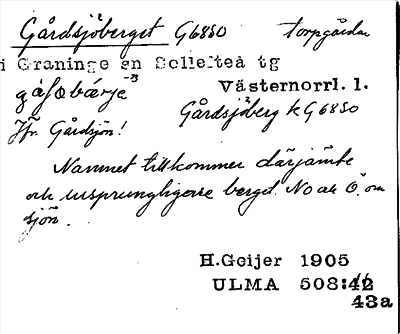 Gårdsjöberget G6850 torpgårdar
i Graninge sn Sollefteå tg
gáʃøbærje Västernorrl. l.
Gårdsjöberg k G6850
Jfr Gårdsjön!
Namnet tillkommer därjämte
och ursprungligare berget NO ab Ö om
sjön.
H.Geijer 1905
ULMA 508:
43a